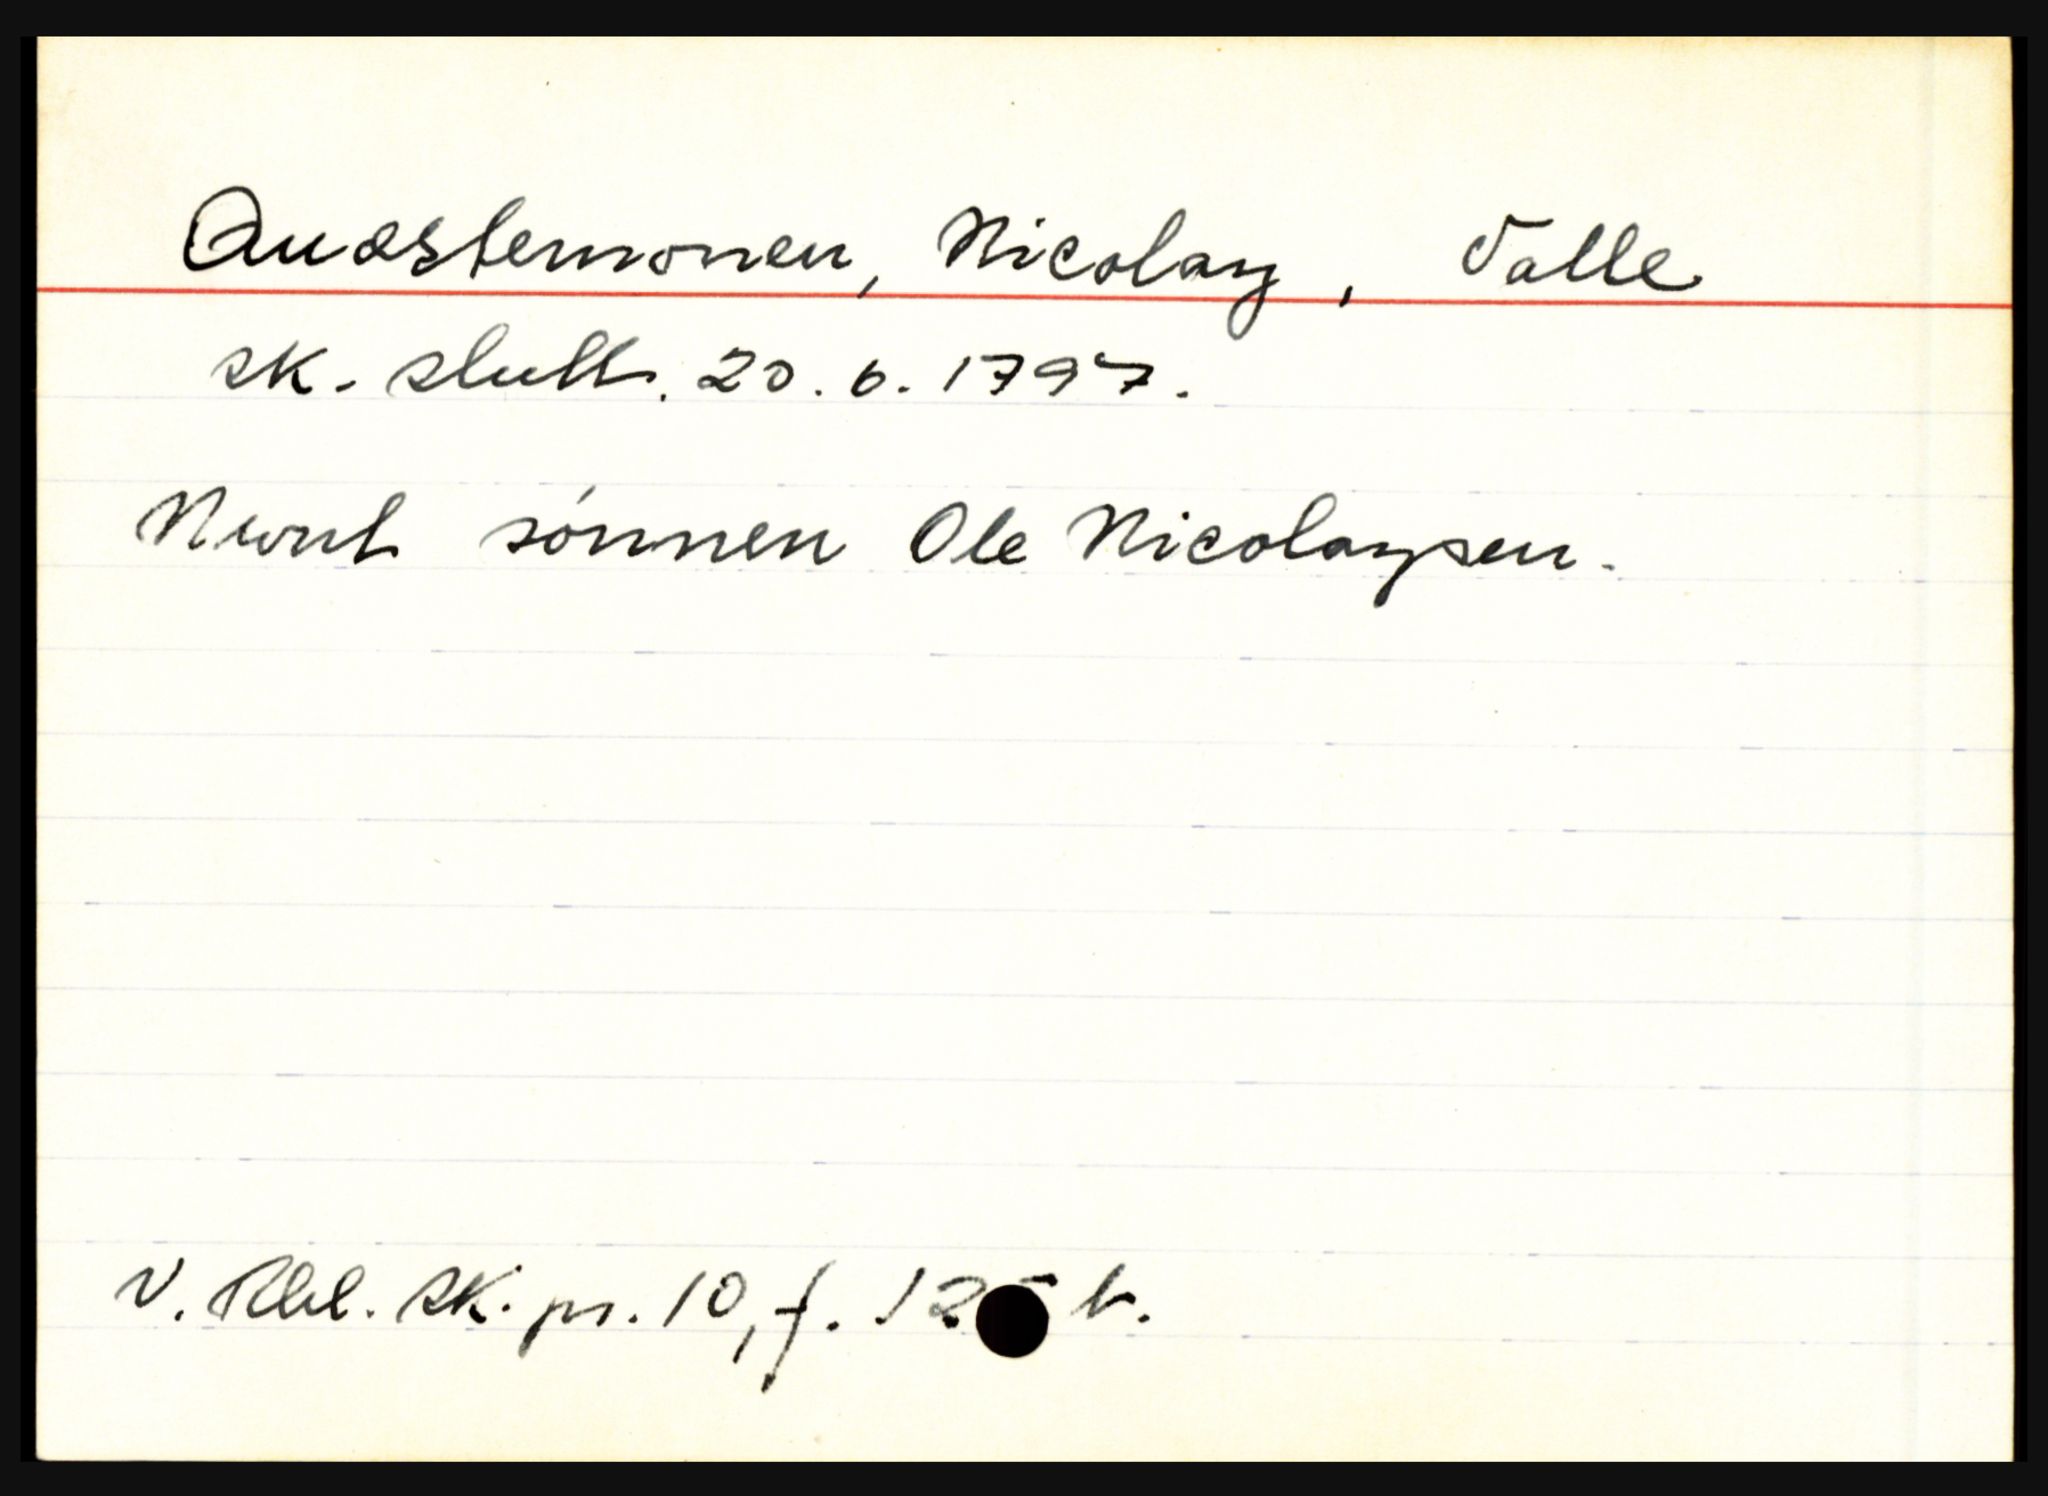 Quæstemonen, Nicolay, Valle
sk. slutt. 20.6.1797.
Nevnt sønnen Ole Nicolaysen.
V. Rbl. sk. pr. 10, f. 125 b.